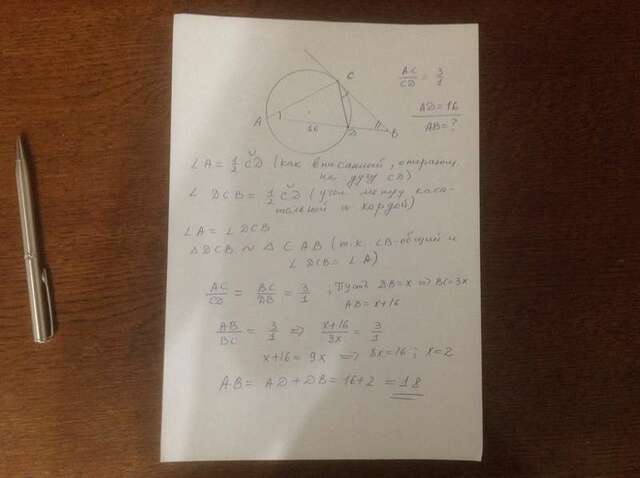 C
A
D
B
16
AC/CD = 3/1
AD=16
AB=?
∠A = 1/2 ◡CD (как вписанный, опирающ.
на дугу CD)
∠ DCB = 1/2 ◡CD (угол между каса-
тельной и хордой)
∠A = ∠DCB
△DCB ~ △CAB (т.к. ∠B-общий и
∠DCB = ∠A)
AC/CD = BC/DB = 3/1 ; Пусть DB=x ⇒ BC=3x
AB=x+16
AB/BC = 3/1 ⇒ x+16/3x = 3/1
x+16 = 9x ⇒ 8x=16; x=2
AB = AD+DB = 16+2 = 18